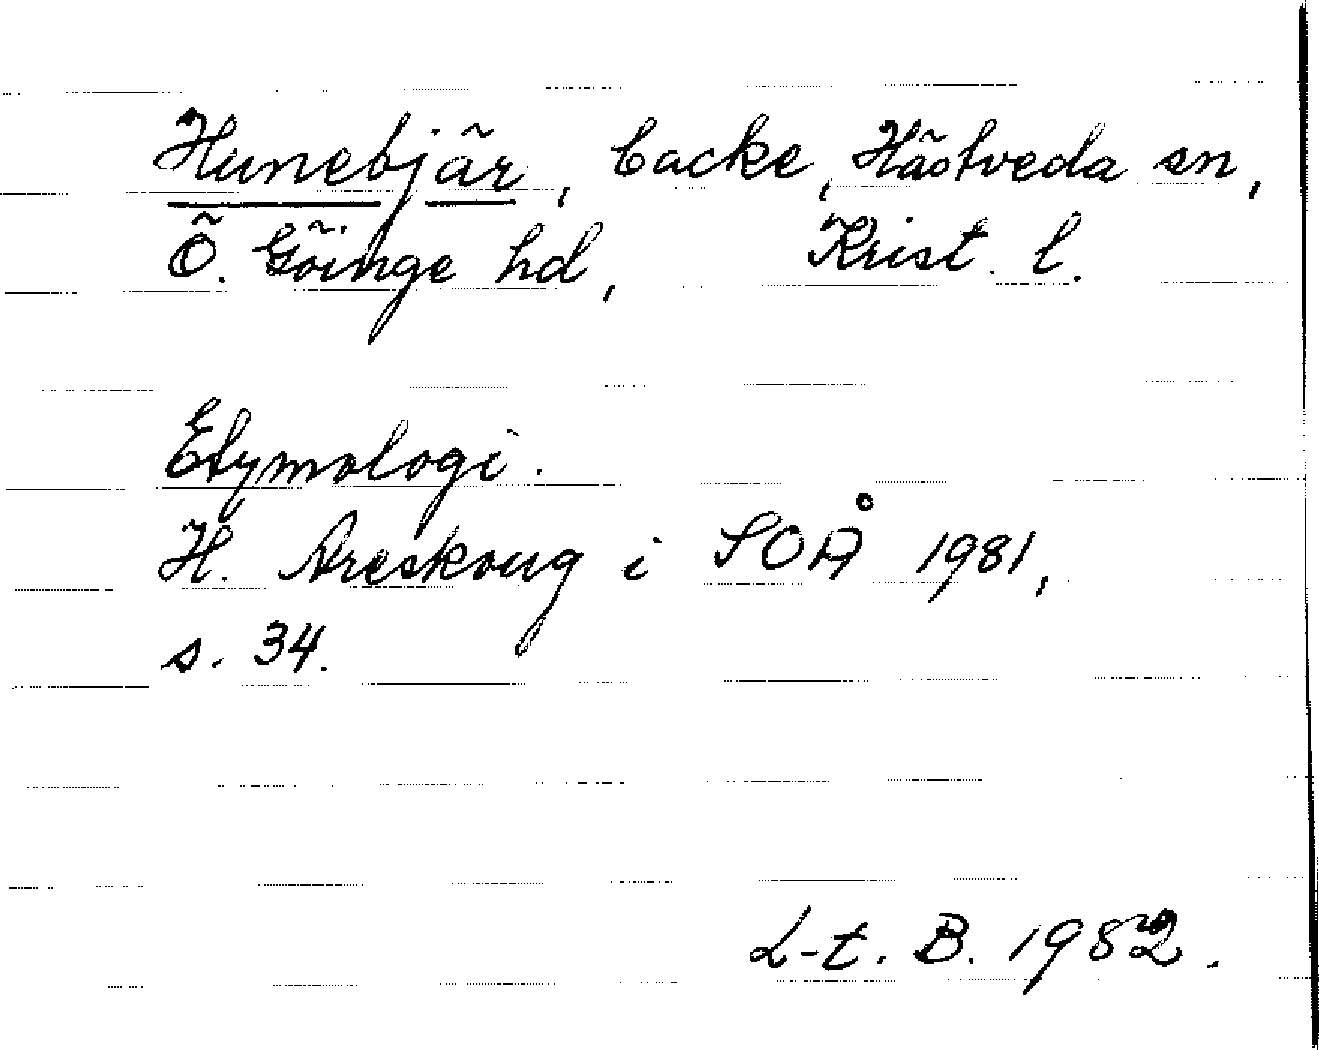 Hunebjär, backe, Hästveda sn,
Ö. Göinge hd, Krist. l.
Etymologi.
H. Areskoug i SOÅ 1981,
s. 34.
L-t. B. 1982.